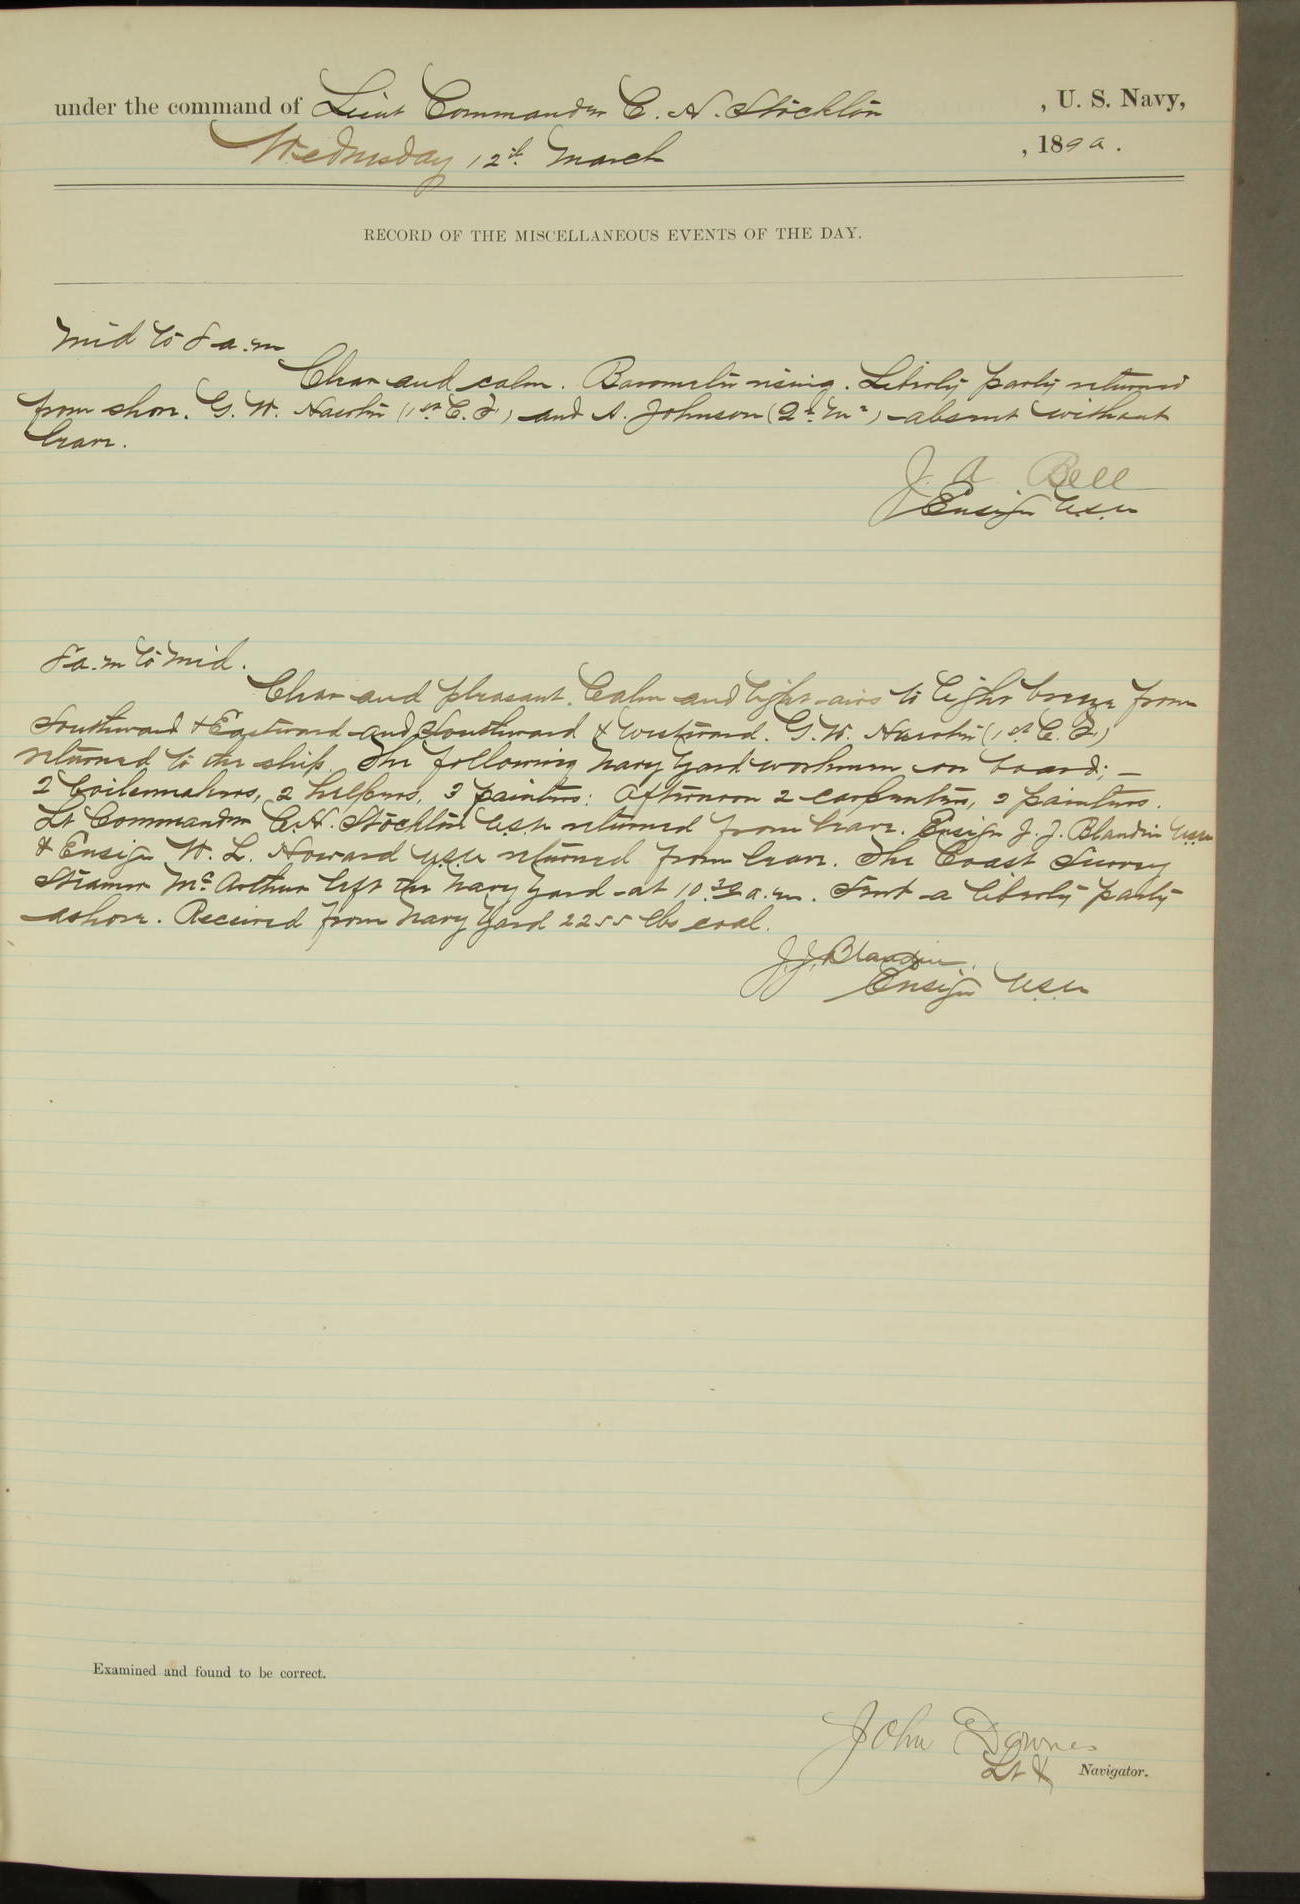 under the command of Lieut Commander C. H. Stockton , U. S. Navy,
Wednesday 12th March , 1890.
RECORD OF THE MISCELLANEOUS EVENTS OF THE DAY.
Mid to 8 a.m
Clear and calm. Barometer rising. Liberty party returned
from shore. G. W. (1st C. F) and A. Johnson (Q. Mr) absent without
leave.
J. A Bell
Ensign USN
8 a.m to Mid.
Clear and pleasant. Calm and light airs to light breeze from
Southward & Eastward and Southward & Westward. G. W. (1st C. F)
returned to the ship. The following Navy Yard workmen on board; —
2 boilermakers, 2 helpers, 3 painters: Afternoon 2 carpenters, 3 painters.
Lt Commander C. H. Stockton USN returned from leave. Ensign J. J. Blandin USN
& Ensign W. L. Howard USN returned from leave. The Coast Survey
Steamer McArthur left the Navy Yard at 10.30 a.m. Sent a liberty party
ashore. Received from Navy Yard 2255 lbs coal.
J. J. Blandin.
Ensign USN
Examined and found to be correct.
John Downes
Lt & Navigator.